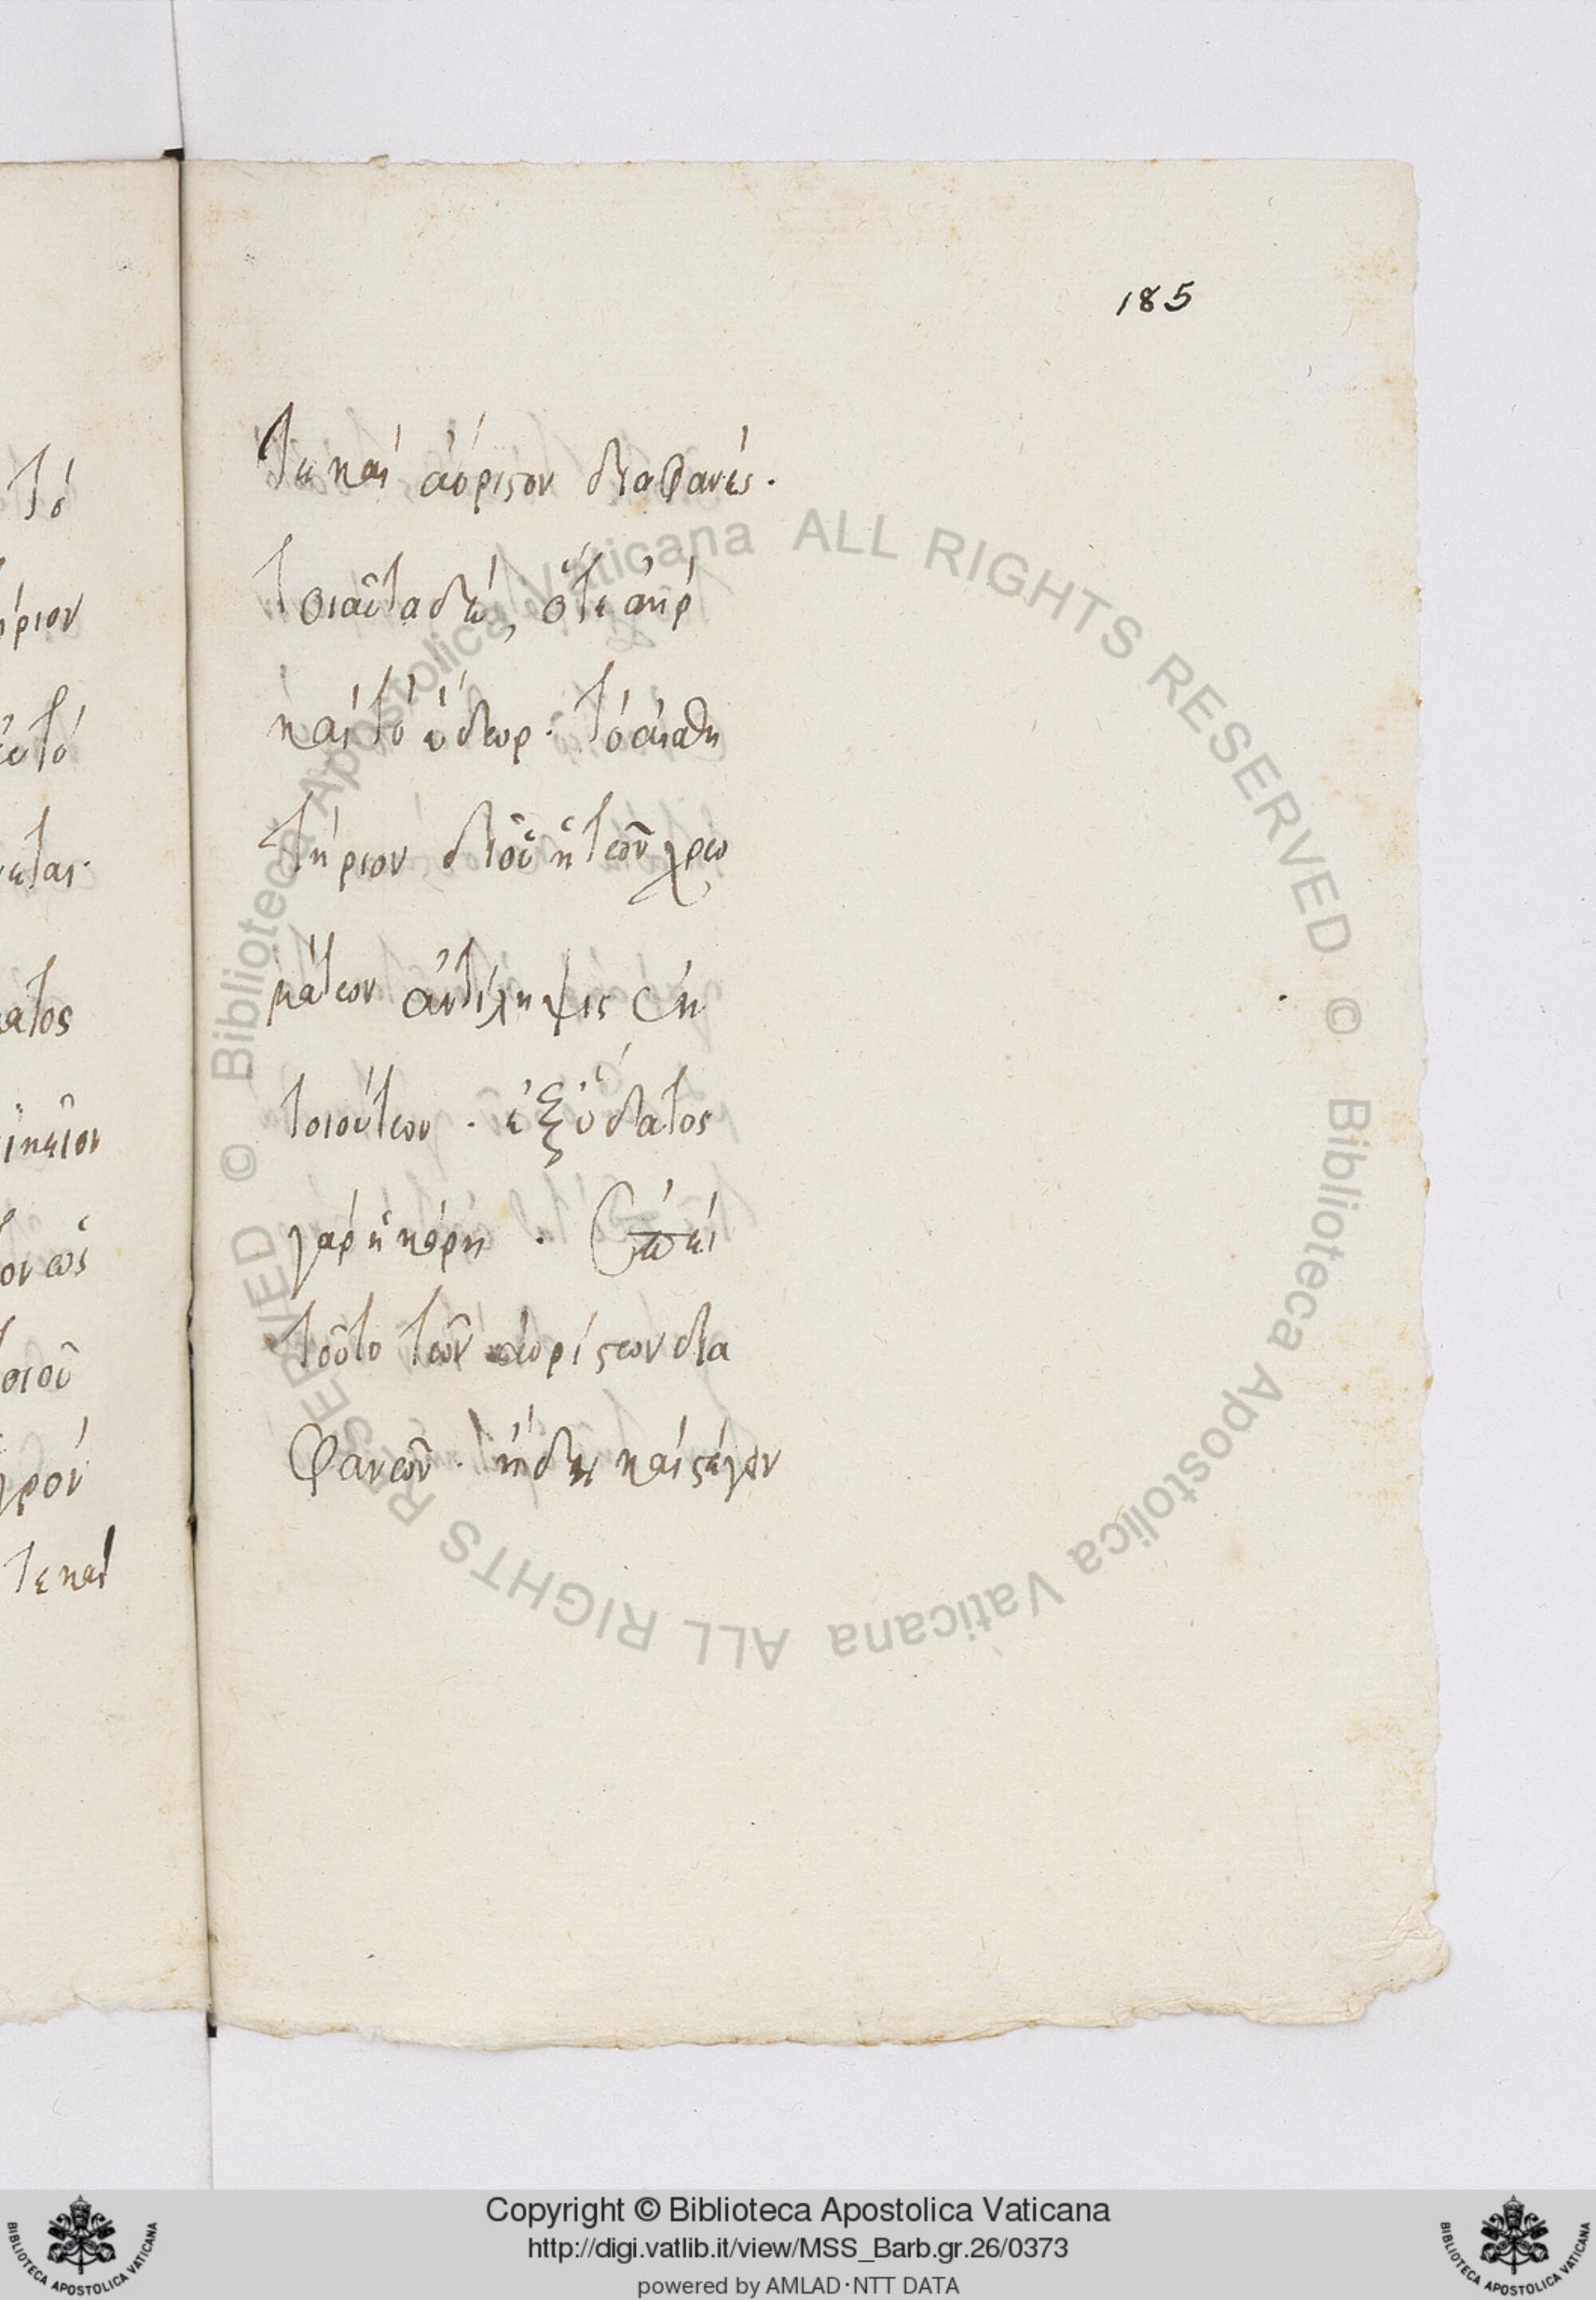 185
τε καὶ ἀόριστον διαφανές.
τοιαῦτα δέ, ὅ τε ἀὴρ
καὶ τὸ ὕδωρ. τὸ αἰσθη
τήριον δι οὗ ἡ τῶν χρω
μάτων ἀντίληψις ἐκ
τοιούτων. ἐξ ὕδατος
γὰρ ἡ κόρη. ἐπεὶ
τοῦτο τῶν ἀορίστων δια
φανῶν. ἤδη καὶ στέγον
τό
ήριον
ετό
εται.
ατος
ικεῖον
ον ὡς
οιοῦ
γρὸν
τε καὶ
© Biblioteca Apostolica Vaticana ALL RIGHTS RESERVED © Biblioteca Apostolica Vaticana ALL RIGHTS RESERVED
Copyright © Biblioteca Apostolica Vaticana
http://digi.vatlib.it/view/MSS_Barb.gr.26/0373
powered by AMLAD·NTT DATA
BIBLIOTECA APOSTOLICA VATICANA
BIBLIOTECA APOSTOLICA VATICANA